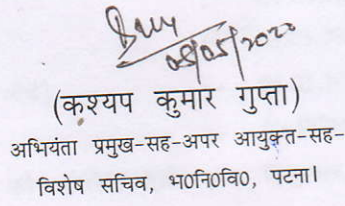 08/05/2020
(कश्यप कुमार गुप्ता)
अभियंता प्रमुख-सह-अपर आयुक्त-सह-
विशेष सचिव, भ0नि0वि0, पटना।